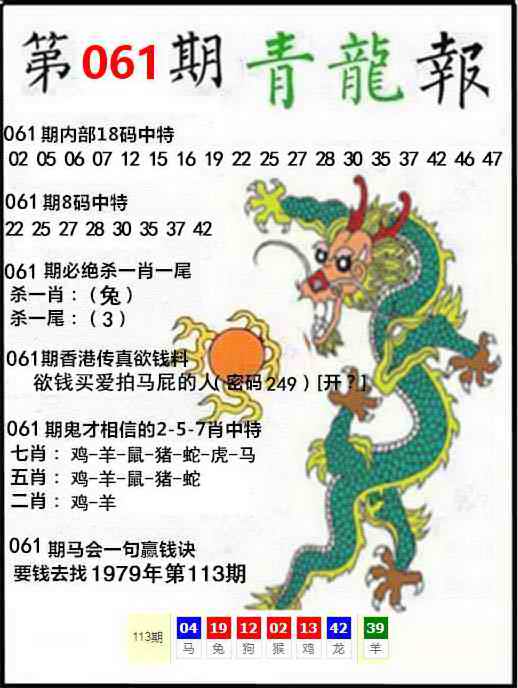 第061期青龍報
061期内部18码中特
02 05 06 07 12 15 16 19 22 25 27 28 30 35 37 42 46 47
061期8码中特
22 25 27 28 30 35 37 42
061 期必绝杀一肖一尾
杀一肖：（兔）
杀一尾：（3）
061期香港传真欲钱料
欲钱买爱拍马屁的人（密码249）[开？]
061期鬼才相信的2-5-7肖中特
七肖：鸡-羊-鼠-猪-蛇-虎-马
五肖：鸡-羊-鼠-猪-蛇
二肖：鸡-羊
061期马会一句赢钱诀
要钱去找1979年第113期
113期 04 19 12 02 13 42 39
马 兔 狗 猴 鸡 龙 羊